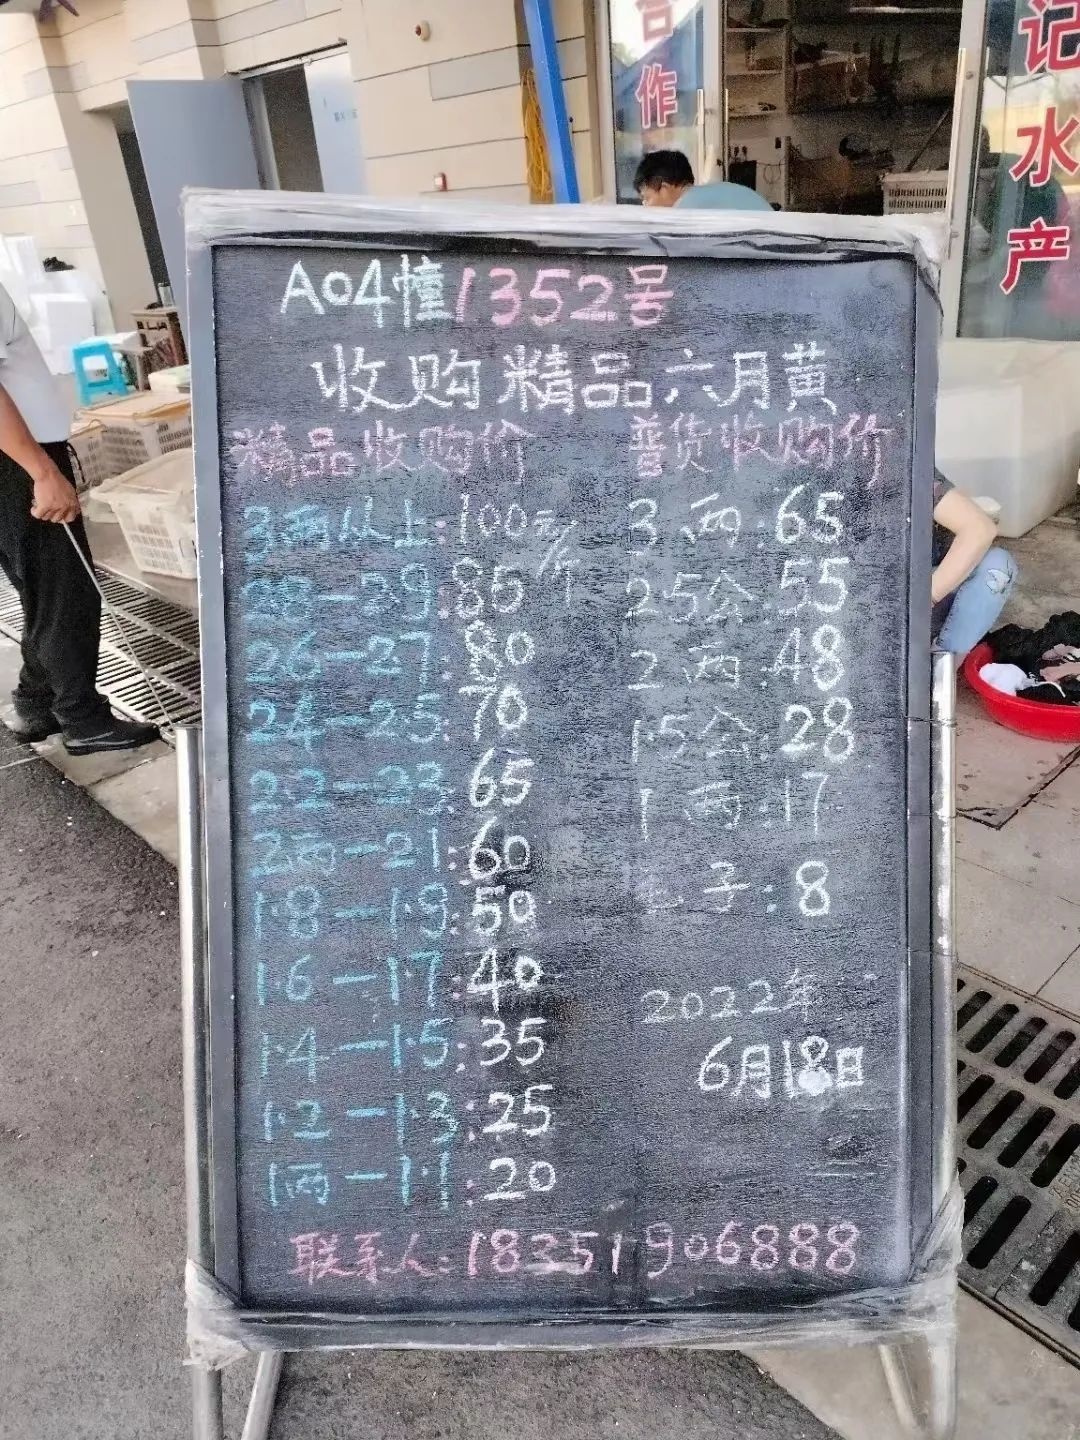 合作
记水产
A04幢1352号
收购精品六月黄
精品收购价
3两以上:100元/斤
28-29:85
26-27:80
24-2.5:70
2.2-23:65
2两-21:60
1.8-1.9:50
1.6-1.7:40
1.4-1.5:35
1.2-1.3:25
1两-1.1:20
普货收购价
3两:65
2.5公:55
2两:48
1.5公:28
1两:17
子:8
2022年
6月18日
联系人:18351906888